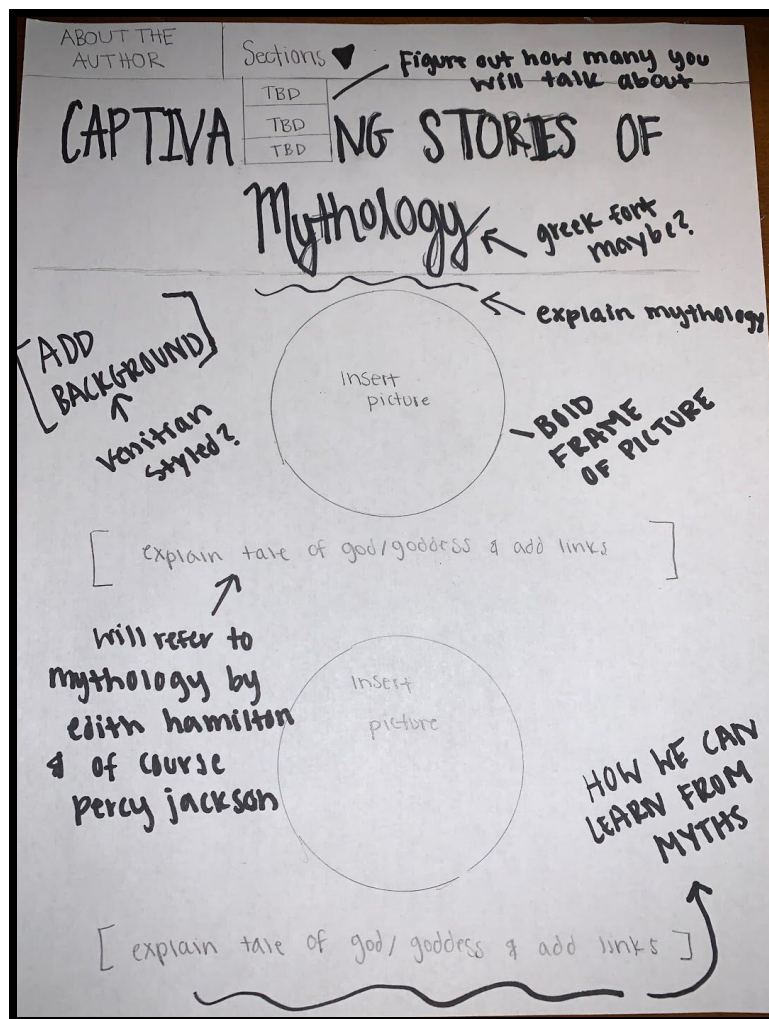 ABOUT THE
AUTHOR
Sections
Figure out how many you
will talk about
TBD
TBD
TBD
CAPTIVA NG STORIES OF
Mythology
greek font
maybe?
explain mythology
[ADD
BACKGROUND]
venitian
styled?
Insert
picture
BOLD
FRAME
OF PICTURE
[explain tale of god/goddess & add links]
will refer to
mythology by
edith hamilton
& of course
percy jackson
Insert
picture
HOW WE CAN
LEARN FROM
MYTHS
[explain tale of god/goddess & add links]